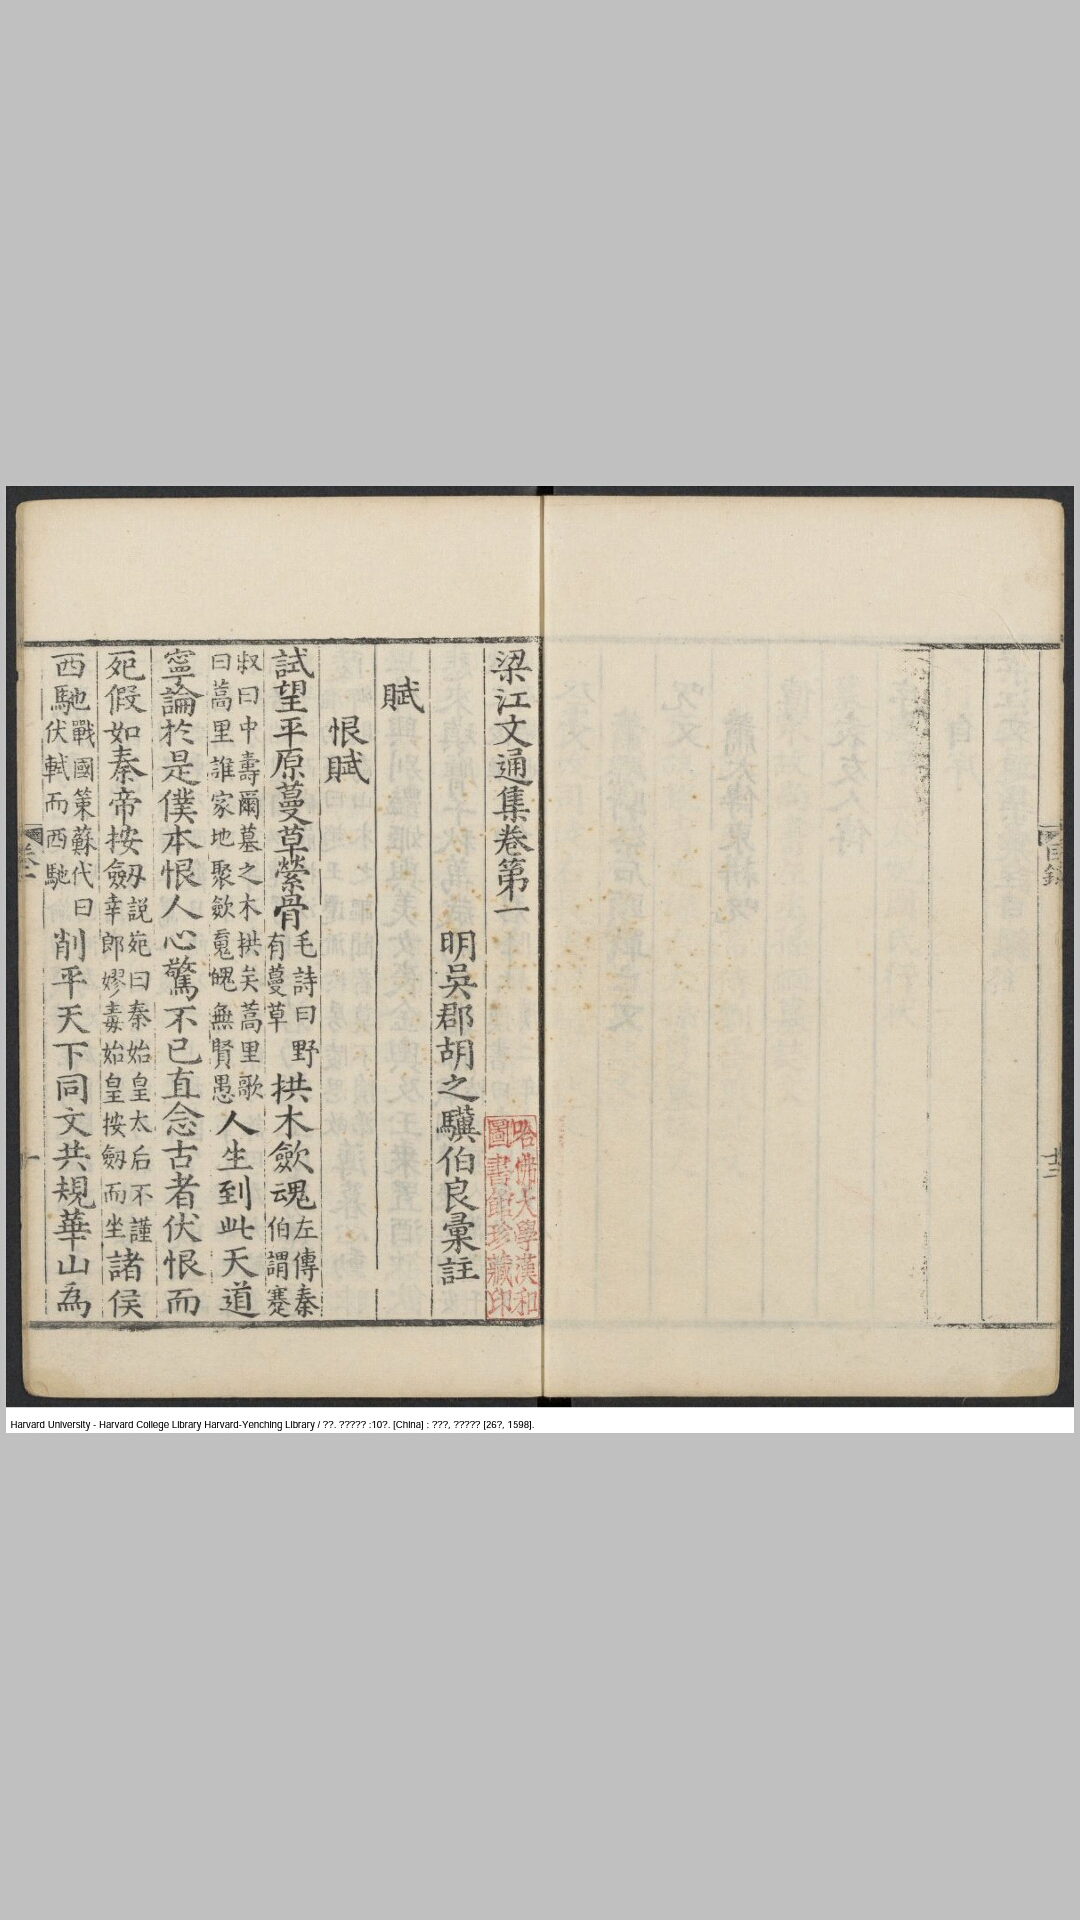 目錄
梁江文通集卷第一
明吳郡胡之驥伯良彙註
哈佛大學漢和
圖書館珍藏印
賦
恨賦
試望平原蔓草縈骨毛詩曰野有蔓草拱木歛魂左傳秦伯謂蹇
叔曰中壽爾墓之木拱矣蒿里歌曰蒿里誰家地聚歛䰟魄無賢愚人生到此天道
寧論於是僕本恨人心驚不已直念古者伏恨而
死假如秦帝按劒說苑曰秦始皇太后不謹幸郎嫪毐始皇按劒而坐諸侯
西馳戰國策蘇代曰伏軾而西馳削平天下同文共規華山為
卷一
一
Harvard University - Harvard College Library Harvard-Yenching Library / ??. ????? :10?. [China] : ???, ????? [26?, 1598].